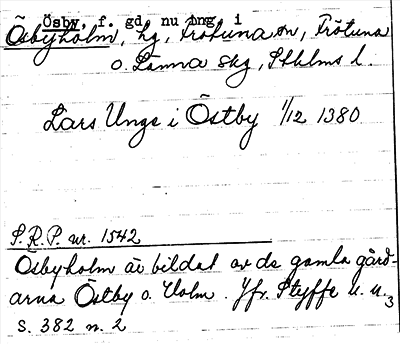 Ösby, f. gd, nu ing. i
Ösbyholm, hg, Frötuna sn, Frötuna
o. Länna skg, Sthlms l.
Lars Unge i Östby 1/12 1380.
S.R.P. nr. 1542
Ösbyholm är bildat av de gamla gård-
arna Östby o. Holm. Jfr. Styffe U.U.3
s. 382 n. 2